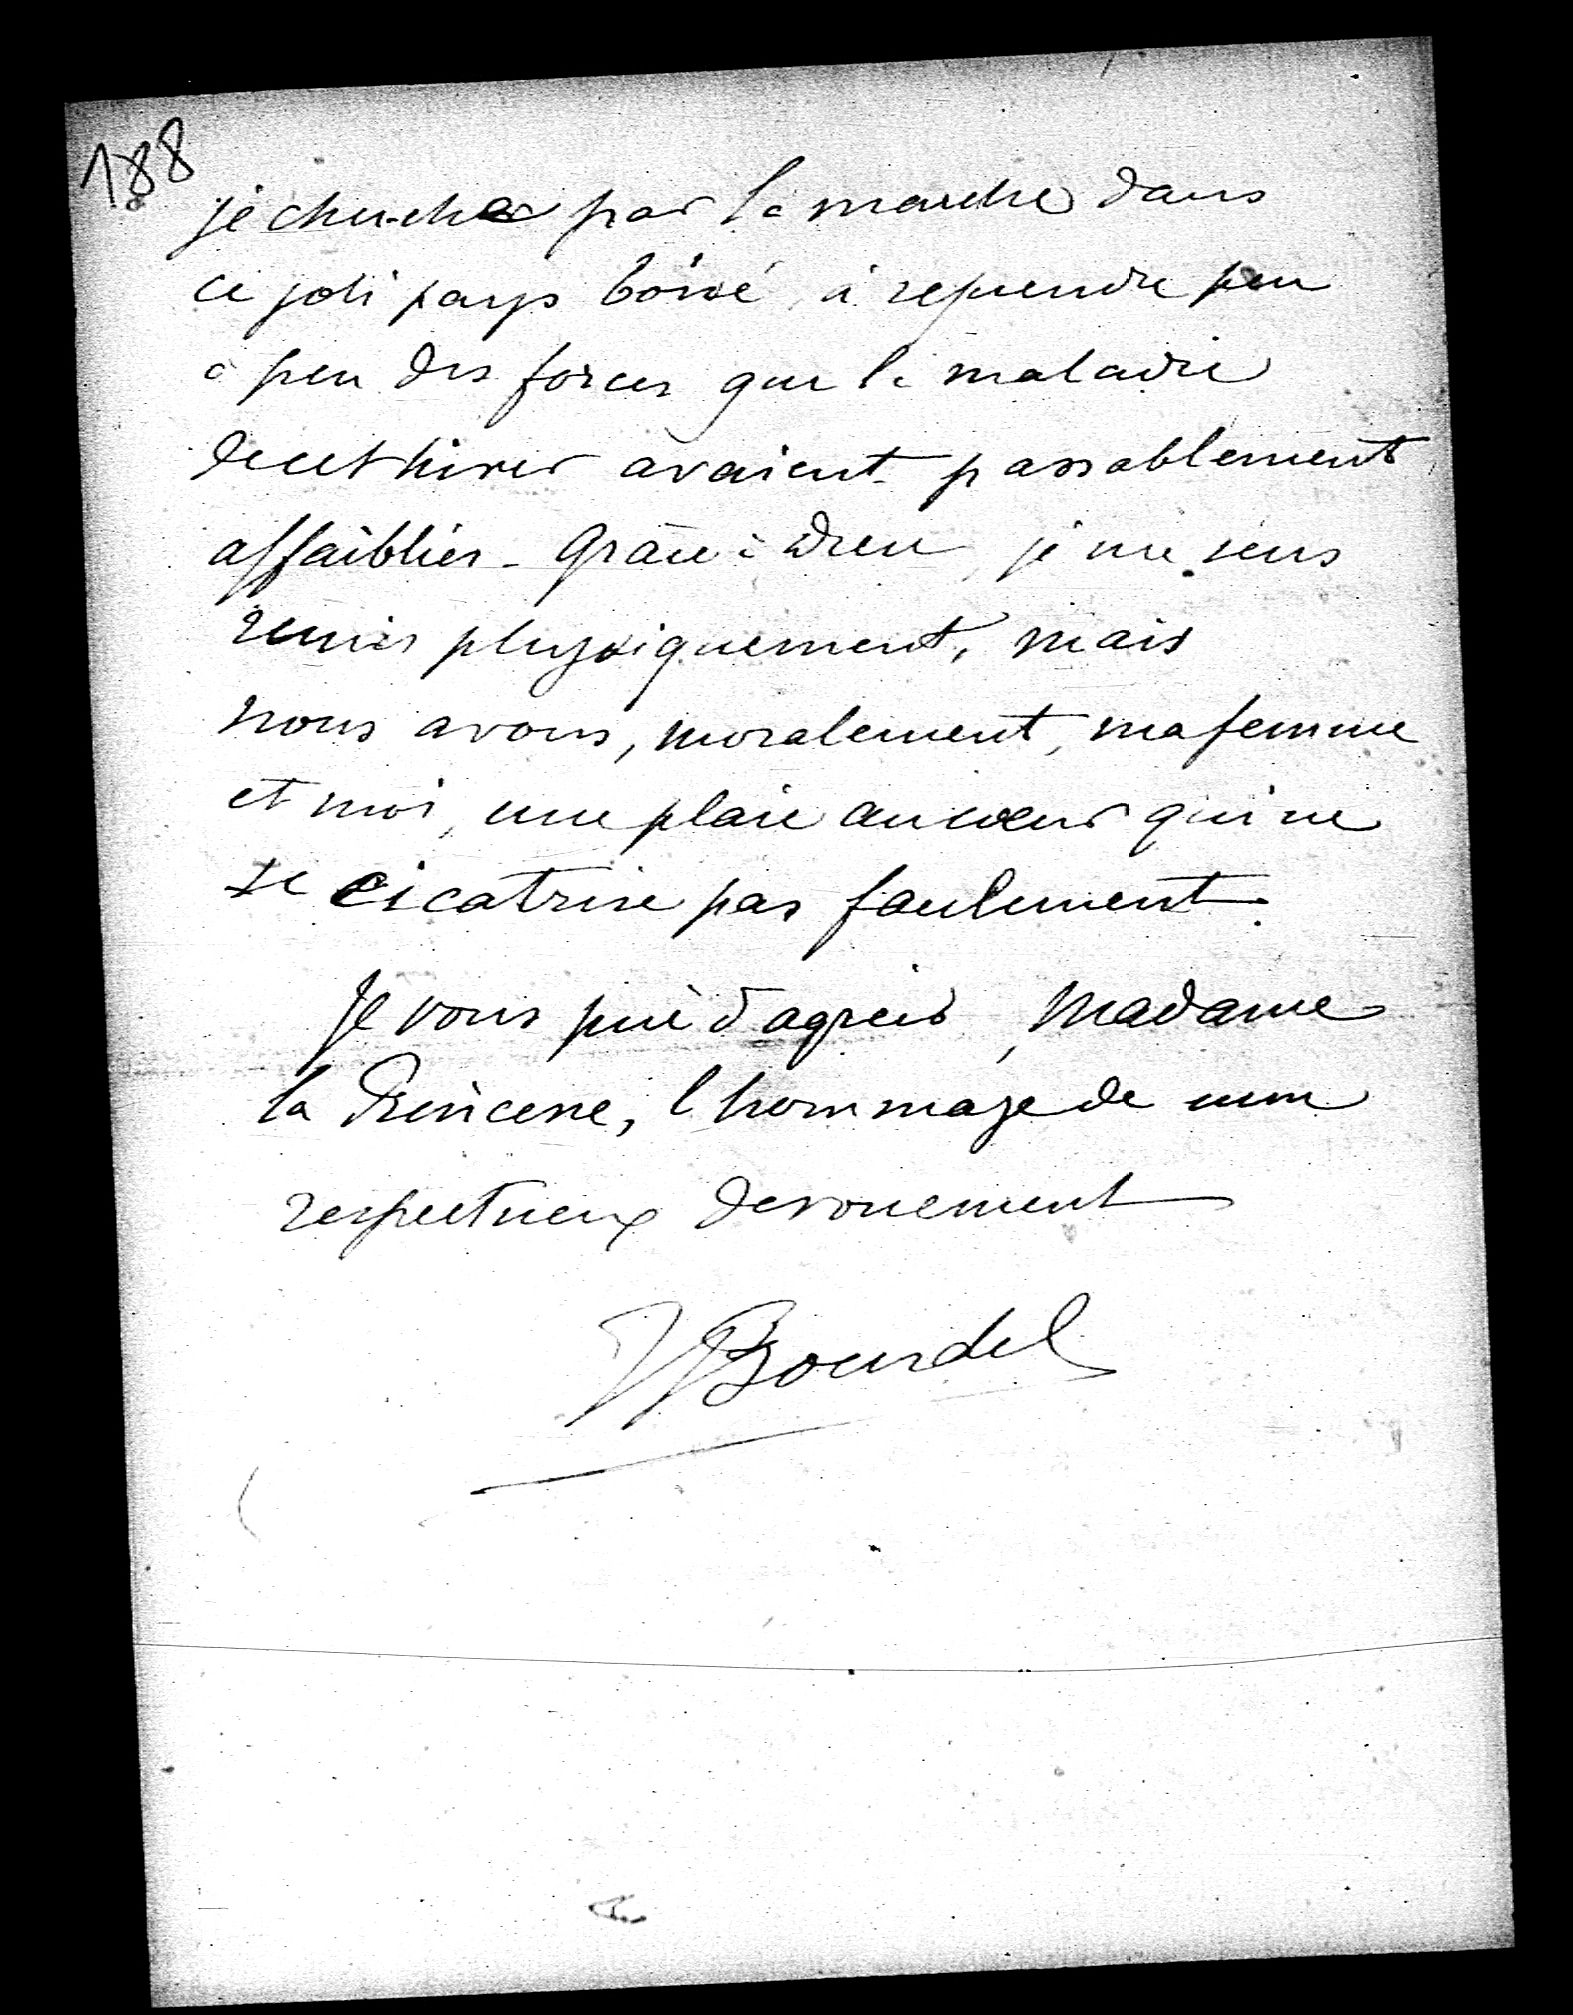 188
je cherche par la marche dans
ce joli pays boisé, à reprendre peu
à peu des forces que la maladie
de cet hiver avaient passablement
affaiblies - Grâce à Dieu, je me sens
remis physiquement, mais
nous avons, moralement, ma femme
et moi, une plaie au cœur qui ne
se cicatrise pas facilement.
Je vous prie d'agréer, Madame
la Princesse, l'hommage de mon
respectueux devouement
Bourdel